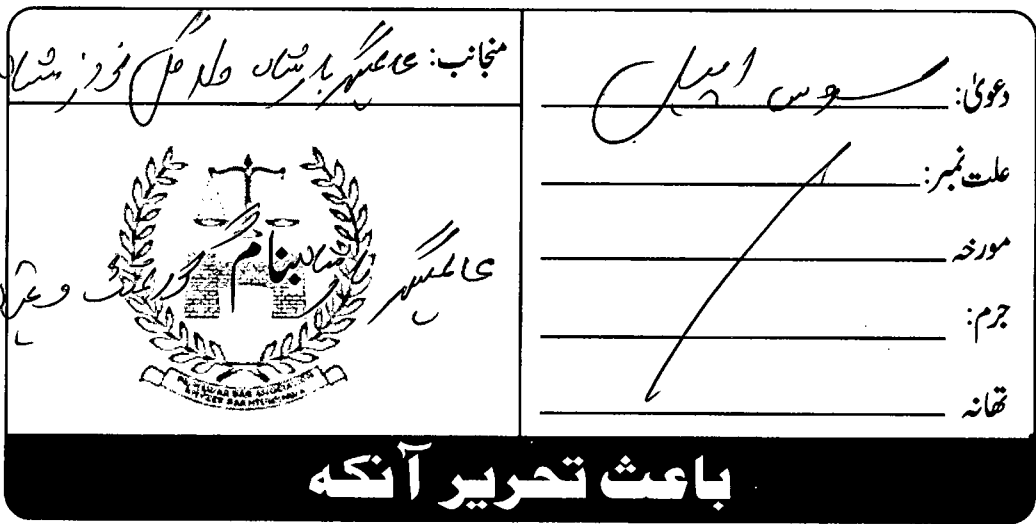 دعویٰ: سروس اپیل
علت نمبر:
مورخہ
جرم:
تھانہ
منجانب: عالمگیر بادشاہ ولد گل
عالمگیر بادشاہ بنام گورنمنٹ وغیرہ
PESHAWAR BAR ASSOCIATION
باعث تحریر آنکہ